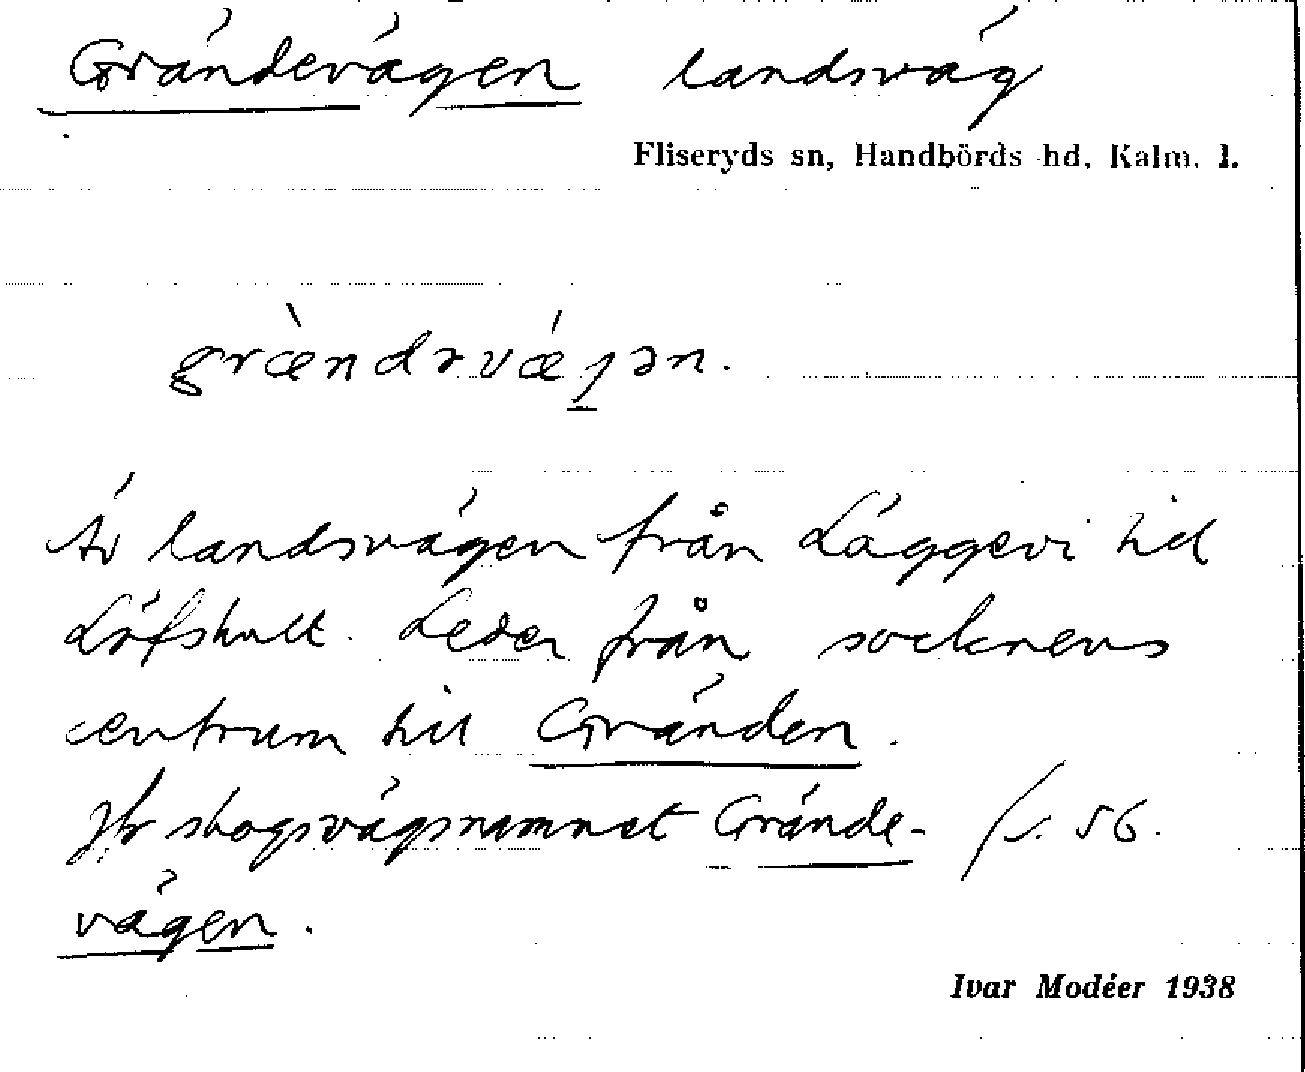 Grändevägen landsväg
Fliseryds sn, Handbörds hd, Kalm. l.
græ̀ndəvǽɟən.
Är landsvägen från Läggevi till
Löfshult. Leder från socknens
centrum till Gränden.
Jfr skogsvägsnamnet Grände- s. 56.
vägen.
Ivar Modéer 1938